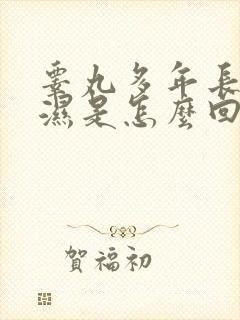 睾丸多年長
濕是怎麼回
賀福初